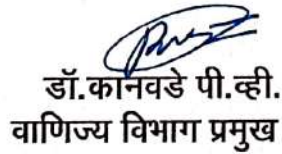 डॉ.कानवडे पी.व्ही.
वाणिज्य विभाग प्रमुख